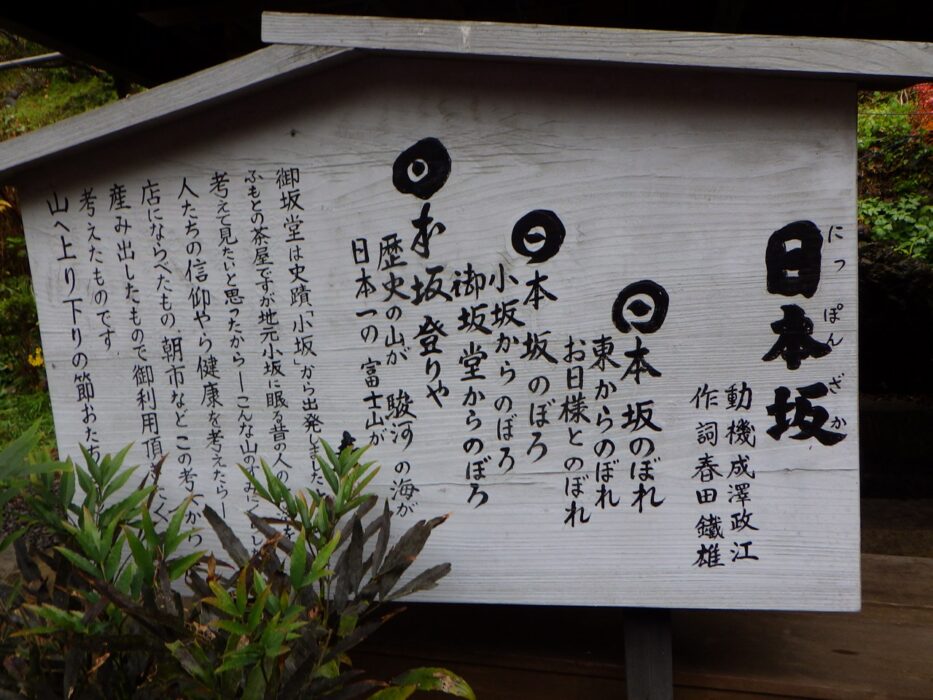 にっぽんざか
日本坂
動機 成澤政江
作詞 春田鐵雄
日本坂のぼれ
東からのぼれ
お日様とのぼれ
日本坂のぼろ
小坂からのぼろ
御坂堂からのぼろ
日本坂登りや
歴史の山が 駿河の海が
日本一の 富士山が
御坂堂は史蹟「小坂から出発しました、
ふもとの茶屋ですが地元小坂に眠る昔の人の
考えて見たいと思ったからーこんな山の
人たちの信仰やら健康を考えたらー
店にならべたもの、朝市など この考
産み出したもので御利用頂きたく
考えたものです
山へ上り下りの節おた